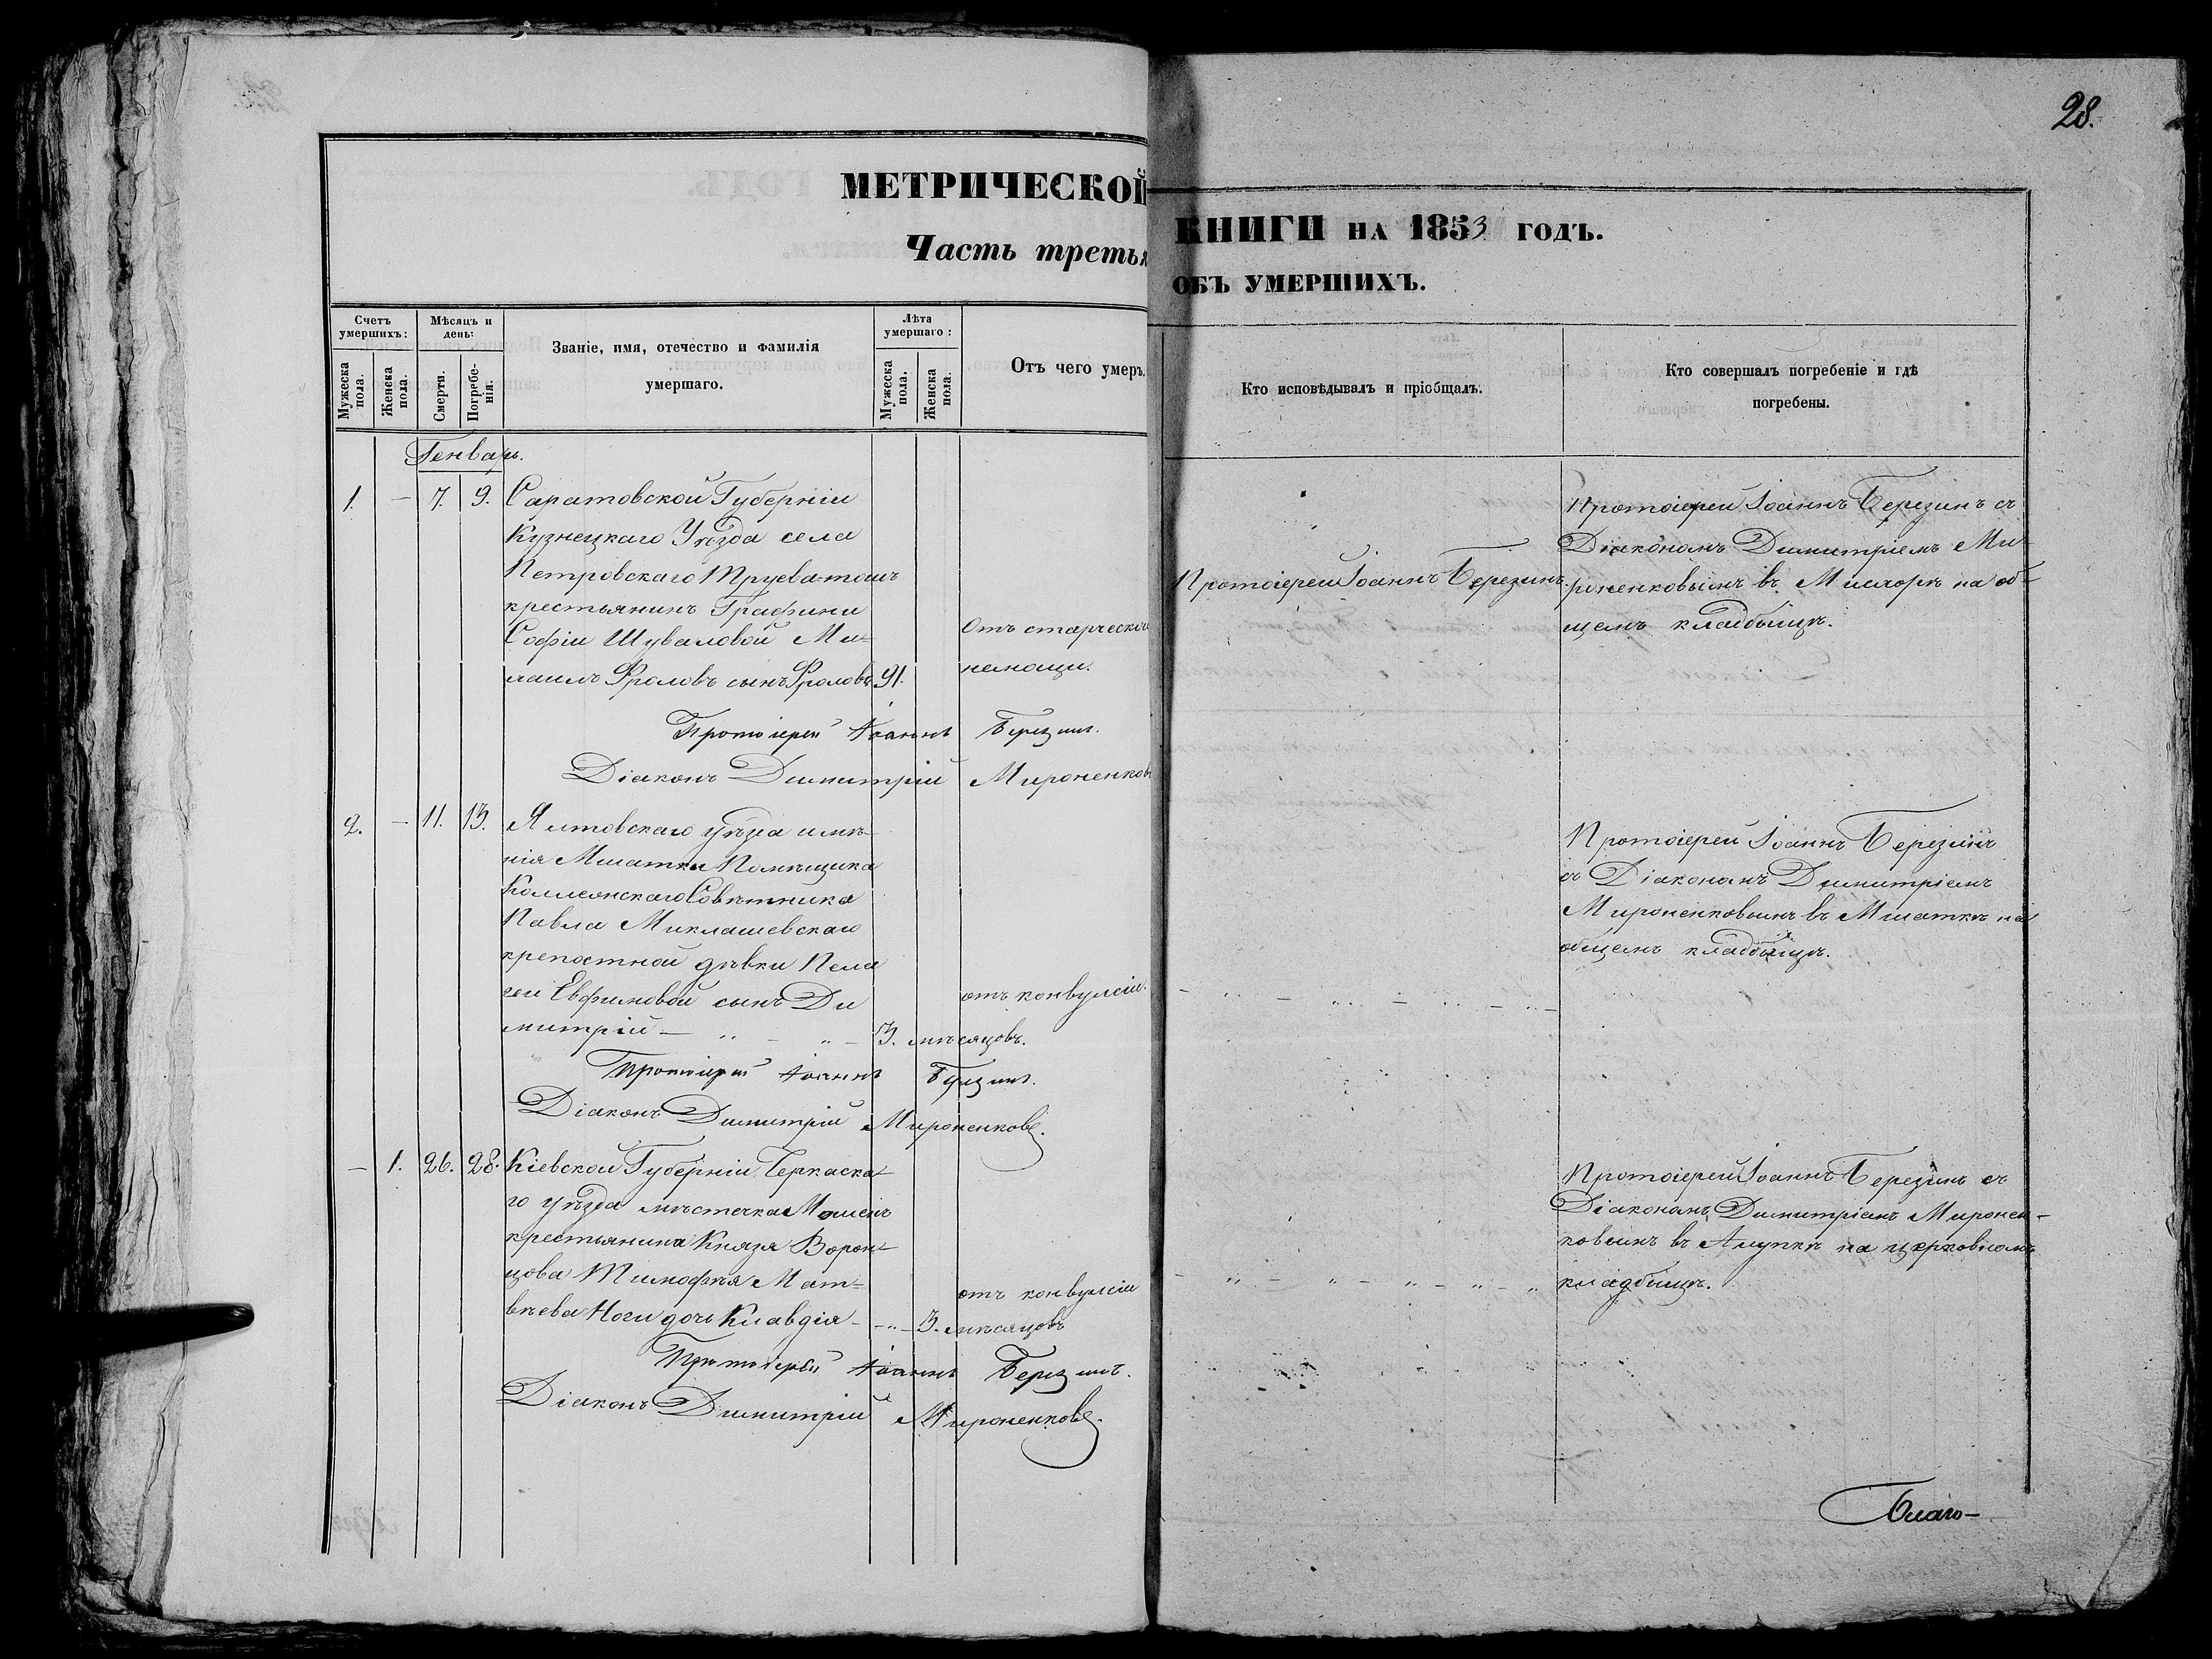 28.
МЕТРИЧЕСКОЙ КНИГИ НА 1853 ГОДЪ.
Часть третья ОБЪ УМЕРШИХЪ.
Счетъ умершихъ:
Мужеска пола.
Женска пола.
Мѣсяцъ и день:
Смерти.
Погребенія.
Званіе, имя, отечество и фамилія
умершаго.
Лѣта умершаго:
Мужеска пола.
Женска пола.
Отъ чего умеръ.
Кто исповѣдывалъ и пріобщалъ.
Кто совершалъ погребеніе и гдѣ
погребены.
Генварь.
1. – 7. 9. Саратовской Губерніи
Кузнецкаго Уѣзда села
Петровскаго Труева-тожъ
крестьянинъ Графини
Софіи Шуваловой Ми-
хаилъ Фроловъ сынъ Фроловъ 91.
Отъ старческой
немощи.
Протоіерей Іоаннъ Березинъ.
Діаконъ Димитрій Мироненковъ
Протоіерей Іоаннъ Березинъ
Протоіерей Іоаннъ Березинъ съ
Діакономъ Димитріемъ Ми-
роненковымъ въ Мисхорѣ на об-
щемъ кладбищѣ.
2. – 11. 13. Ялтовскаго уѣзда имѣ-
нія Мшатки Помѣщика
Коллежскаго Совѣтника
Павла Миклашевскаго
крепостной дѣвки Пела
геи Евфимовой сынъ Ди
митрій – „ – „ – 3. мѣсяцовъ.
отъ конвулсіи.
Протоіерей Іоаннъ Березинъ.
Діаконъ Димитрій Мироненковъ.
– „ – „ – „ –
Протоіерей Іоаннъ Березинъ
съ Діакономъ Димитріемъ
Мироненковымъ въ Мшаткѣ на
общемъ кладбищѣ.
– 1. 26. 28. Кіевской Губерніи Черкаска-
го уѣзда мѣстечка Мошенъ
крестьянина Князя Ворон-
цова Тимофѣя Мат-
вѣева Ноги дочь Клавдія – – „ – 3. мѣсяцовъ
отъ конвулсіи
Протоіерей Іоаннъ Березинъ.
Діаконъ Димитрій Мироненковъ.
– „ – „ – „ – „ – „
Протоіерей Іоаннъ Березинъ съ
Діакономъ Димитріемъ Миронен-
ковымъ въ Алупкѣ на церковномъ
кладбищѣ.
Благо-